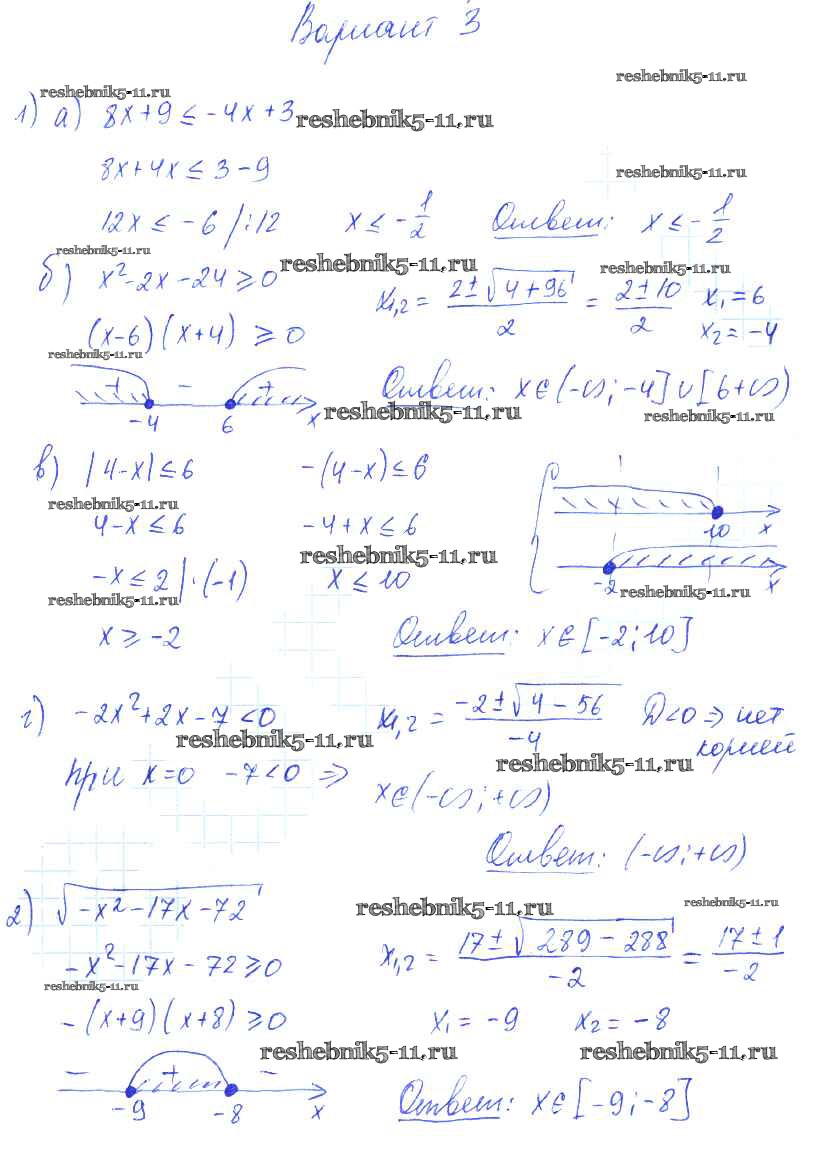 Вариант 3
reshebnik5-11.ru
reshebnik5-11.ru
1) а) 8x+9 ≤ -4x+3
reshebnik5-11.ru
8x+4x ≤ 3-9
reshebnik5-11.ru
12x ≤ -6 /:12 x ≤ -1/2 Ответ: x ≤ -1/2
reshebnik5-11.ru
reshebnik5-11.ru
reshebnik5-11.ru
б) x²-2x-24 ≥ 0 x₁,₂ = (2±√(4+96))/2 = (2±10)/2 x₁=6
x₂=-4
(x-6)(x+4) ≥ 0
reshebnik5-11.ru
+ - +
-4 6 x
Ответ: x∈(-∞;-4]∪[6+∞)
reshebnik5-11.ru
reshebnik5-11.ru
в) |4-x| ≤ 6 -(4-x) ≤ 6
reshebnik5-11.ru
4-x ≤ 6 -4+x ≤ 6
10 x
reshebnik5-11.ru
-x ≤ 2 |·(-1) x ≤ 10
-2 x
reshebnik5-11.ru
reshebnik5-11.ru
x ≥ -2 Ответ: x∈[-2;10]
г) -2x²+2x-7<0 x₁,₂ = (-2±√(4-56))/-4 D<0 ⇒ нет
корней
reshebnik5-11.ru
reshebnik5-11.ru
при x=0 -7<0 ⇒ x∈(-∞;+∞)
Ответ: (-∞;+∞)
2) √(-x²-17x-72)
reshebnik5-11.ru
reshebnik5-11.ru
-x²-17x-72 ≥ 0 x₁,₂ = (17±√(289-288))/-2 = (17±1)/-2
reshebnik5-11.ru
-(x+9)(x+8) ≥ 0 x₁=-9 x₂=-8
reshebnik5-11.ru
reshebnik5-11.ru
- + -
-9 -8 x
Ответ: x∈[-9;-8]